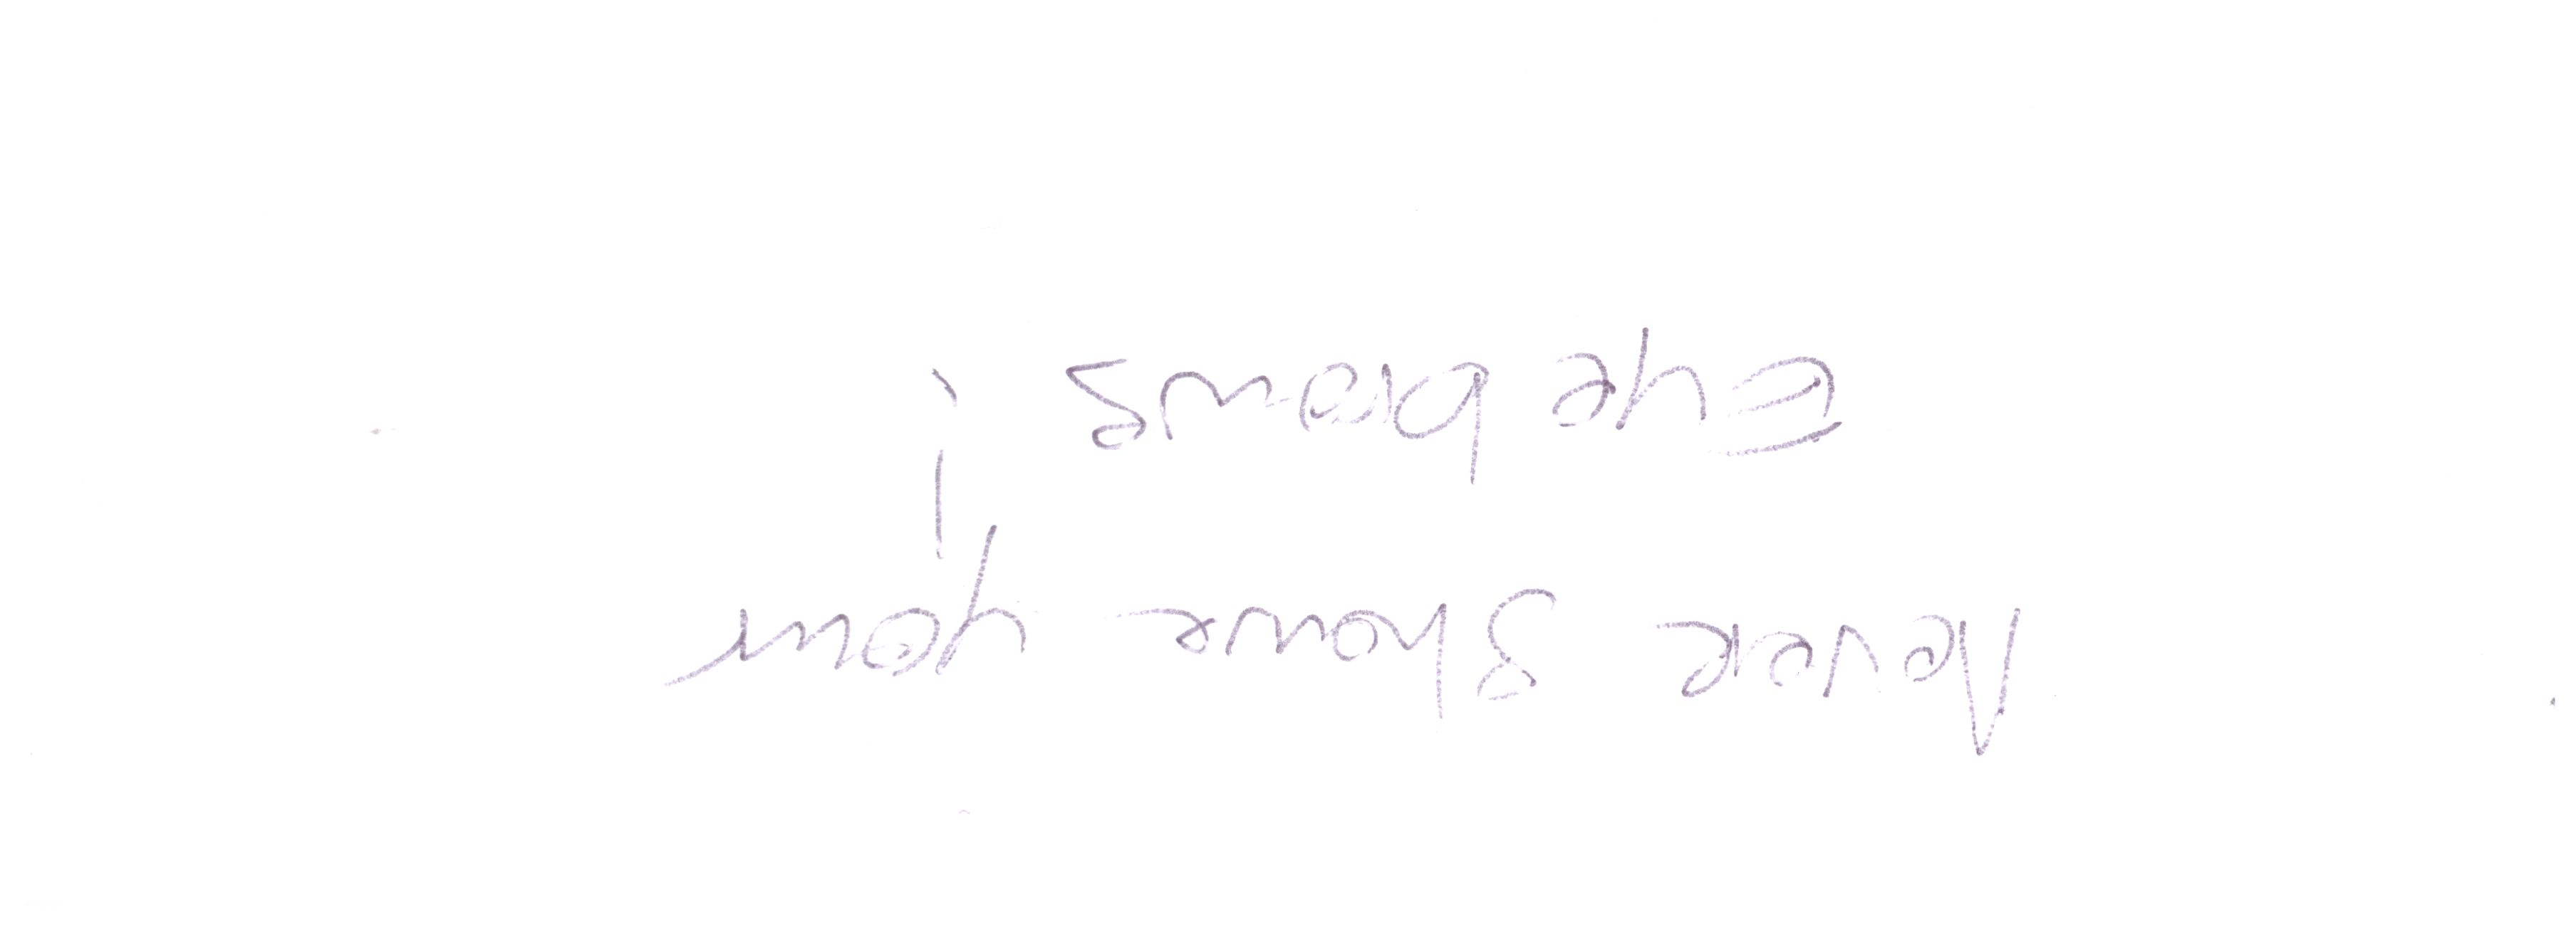 Never Shave your
Eye brows!